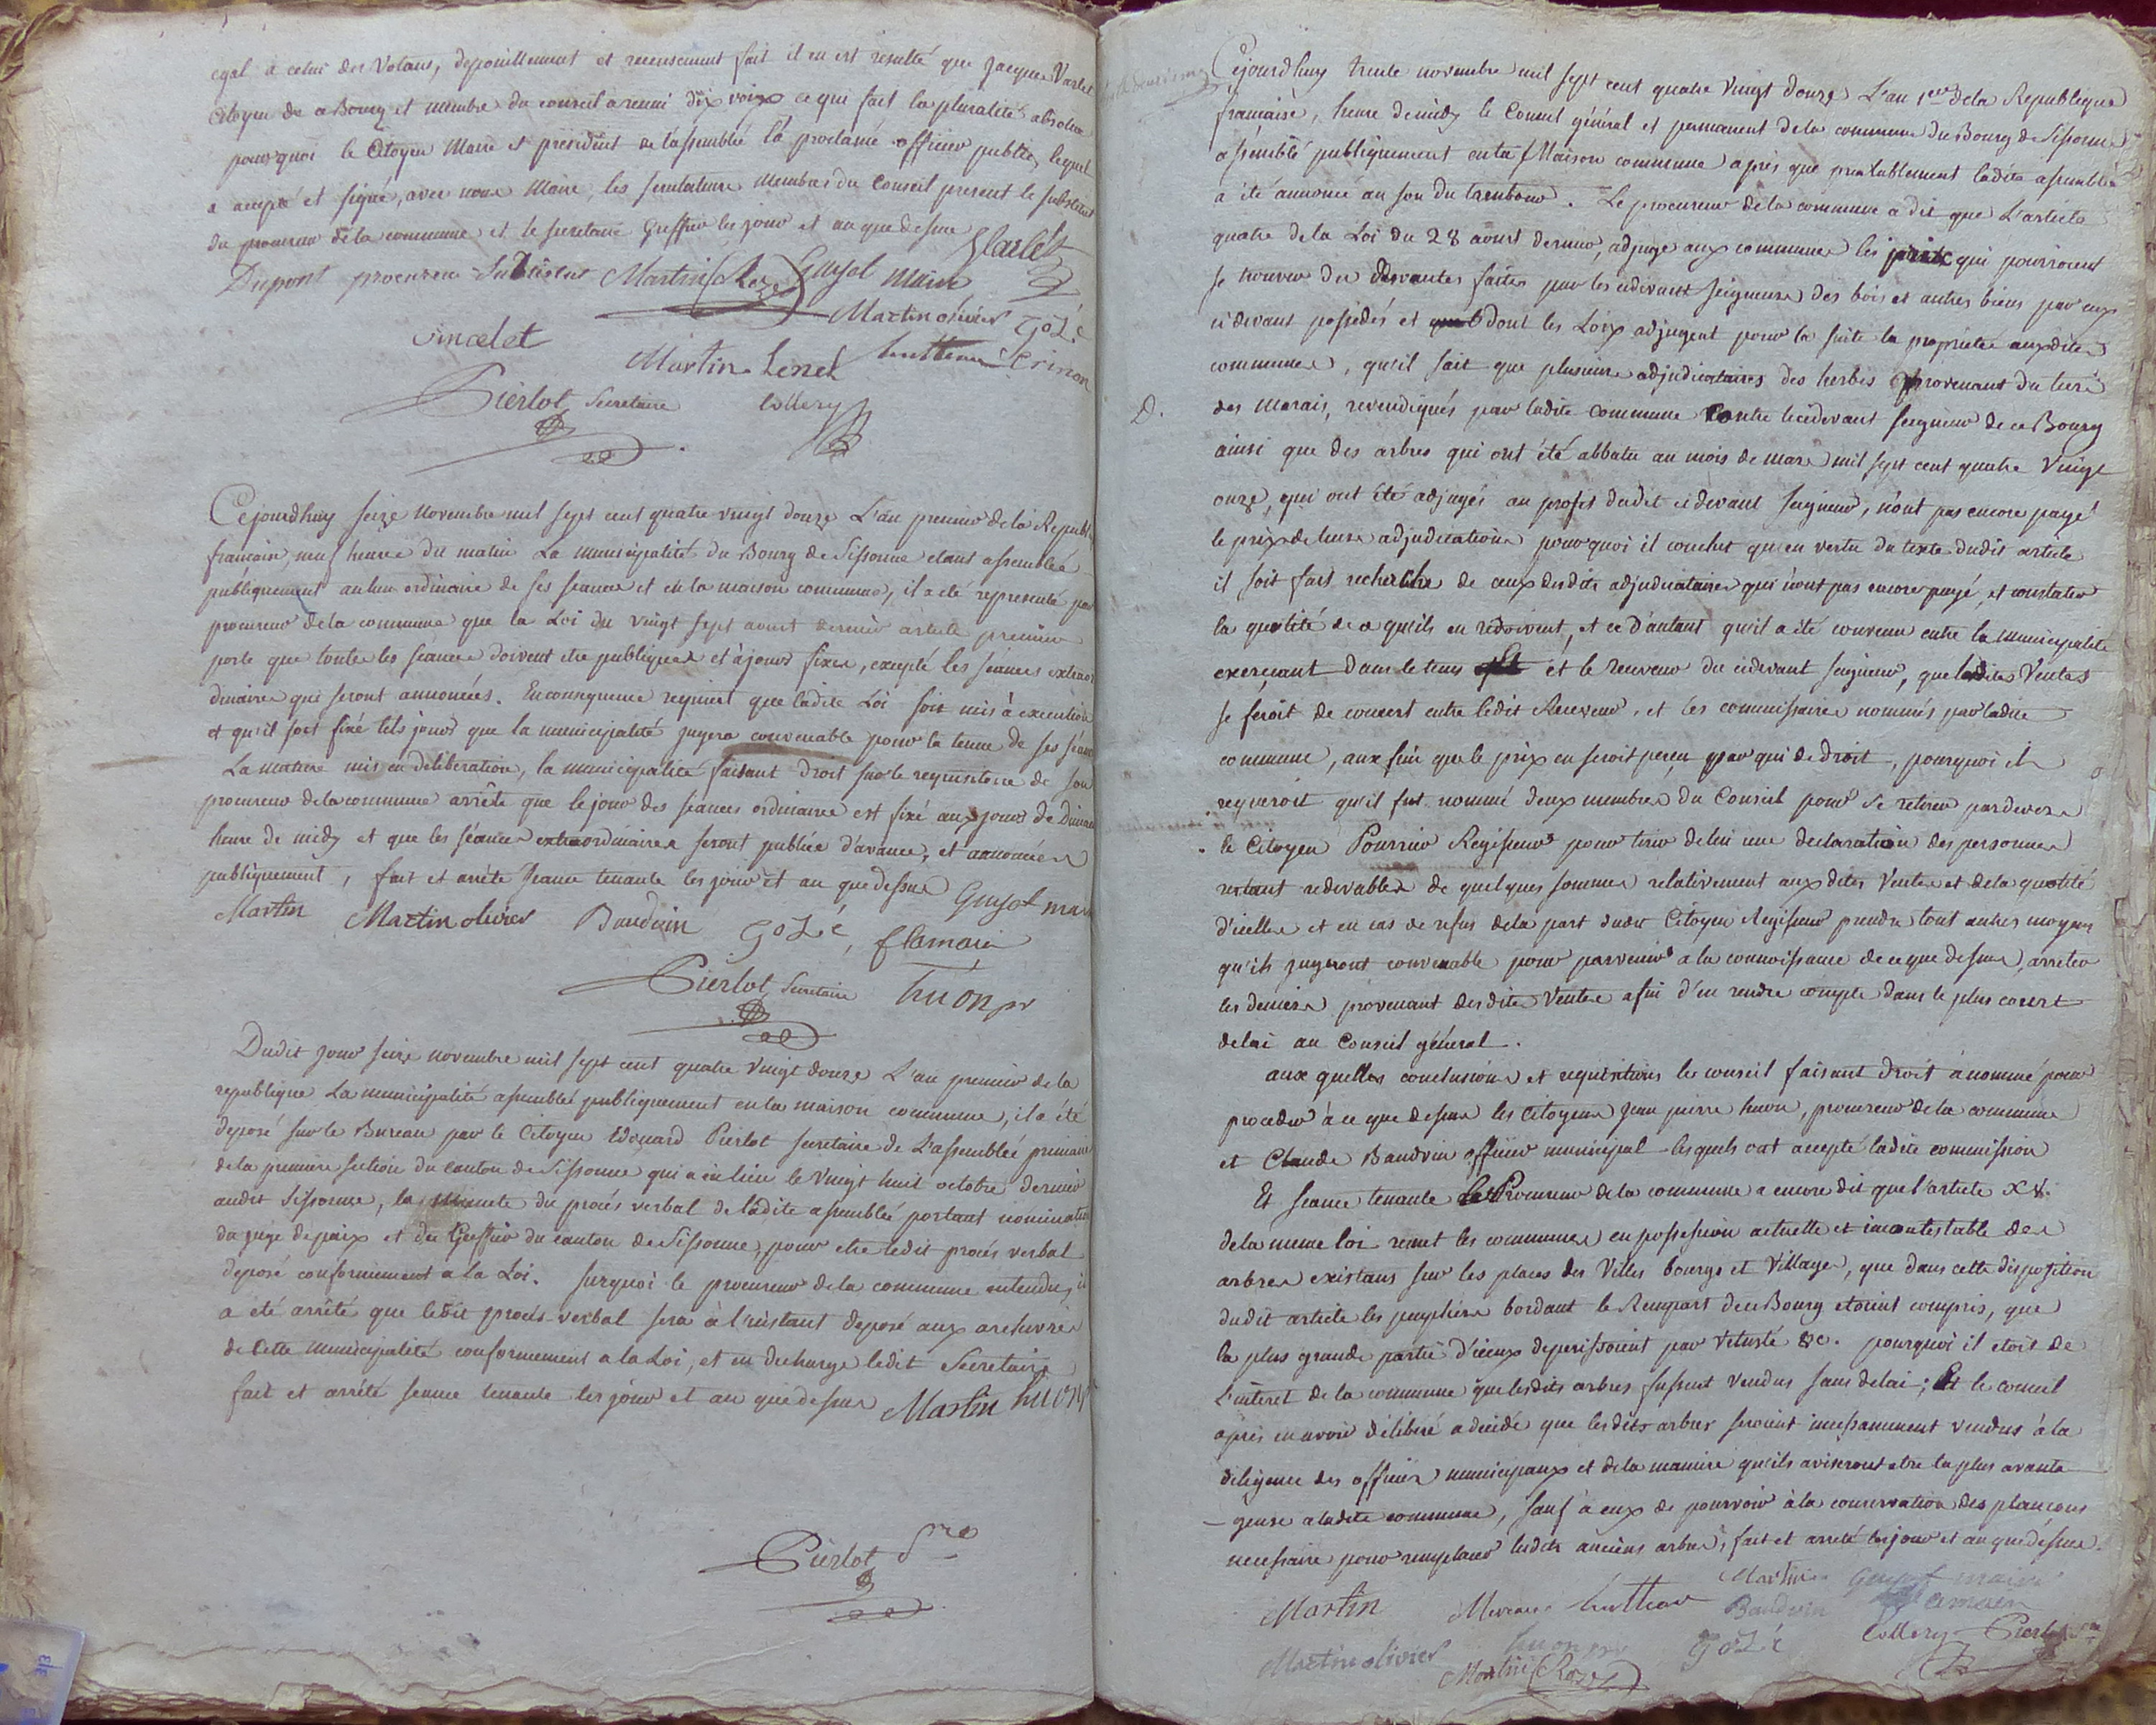 egal a celui des Votans, depouillement et recensement fait il en est resulté que Jacque Varlet
citoyen de ce Bourg et membre du conseil a reuni dix voix ce qui fait la pluralité absolue
pourquoi le Citoyen Maire et président de l'assemblée l'a proclamé officier public, lequel
a accepté et signé, avec nous Maire, les scrutateurs Membres du Conseil present le substitut
du procureur de la commune et le secretaire Greffier les jour et an que dessus
Dupont procureur Substitut Martin Roze Guyot Maire Varlet
Martin olivier Gozé
Martin Lenet hutteau Crinon
Pierlot Secretaire Collery
Cejourdhuy seize Novembre mil sept cent quatre vingt douze L'an premier de la Republ
francaise, neuf heures du matin La municipalité du Bourg de Sissonne etant assemblée
publiquement au lieu ordinaire de ses seances et en la maison commune, il a été representé par
procureur de la commune que la Loi du vingt sept aoust dernier article premier
porte que toutes les seances doivent etre publiques et à jours fixes, excepté les séances extraor
dinaires qui seront annoncées. En consequence requiert que ladite Loi soit mis à execution
et qu'il soit fixé tels jours que la municipalité jugera convenable pour la tenue de ses séances
La matiere mis en deliberation, la municipalité faisant droit sur le requisitoire de son
procureur de la commune arrête que le jour des séances ordinaires est fixé aux jours de Diman
heure de midy et que les séances extraordinaires seront publiée d'avance, et annoncées
publiquement, fait et arrêté seance tenante les jour et an que dessus Guyot maire
Martin Martin olivier Baudvin Gozé, flamain
Pierlot Secretaire huon pr
Dudit jour seize novembre mil sept cent quatre vingt douze L'an premier de la
republique La municipalité assemblée publiquement en la maison commune, il a été
deposé sur le Bureau par le Citoyen Edouard Pierlot secretaire de L'assemblée primaire
de la premiere section du canton de Sissonne qui a eu lieu le Vingt huit octobre dernier
audit Sissonne, la Minute du procés verbal de ladite assemblée portant nomination
du juge de paix et du Greffier du canton de Sissonne, pour etre ledit procés verbal
deposé conformement a la Loi. Surquoi le procureur de la commune entendu, il
a été arrêté que ledit procés-verbal sera à l'instant deposé aux archives
de Cette municipalité conformement a la Loi, et en decharge ledit Secretaire
fait et arrêté seance tenante les jour et an que dessus Martin huon
Pierlot Sre
Cejourdhuy trente novembre mil sept cent quatre Vingt douze L'an 1er de la Republique
francaise, heure de midy le Conseil général et permanent de la commune du Bourg de Sissonne
assemblé publiquement en la Maison commune après que prealablement ladite assemblée
a été annoncé au son du tambour. Le procureur de la commune a dit que L'article
quatre de la Loi du 28 aoust dernier, adjuge aux communes les prix qui pourroient
se trouver dû des ventes faites par les cidevant seigneurs des bois et autres biens par eux
ci devant possédés et dont les Loix adjugent pour la suite la propriété auxdites
communes, qu'il sait que plusieurs adjudicataires des herbes provenant du tiers
D. des Marais, revendiqués par ladite Commune Contre le cidevant seigneur de ce Bourg
ainsi que des arbres qui ont été abbatu au mois de mars mil sept cent quatre Vingt
onze, qui ont été adjugés au profit dudit ci devant seigneur, n'ont pas encore payé
le prix de leurs adjudications pourquoi il conclut qu'en vertu du texte dudit article
il soit fait recherche de ceux desdits adjudicataires qui n'ont pas encore payé, et constater
la quotité de ce qu'ils en redoivent, et ce d'autant qu'il a été convenu entre la municipalité
exerçant Dans le tems et le receveur du cidevant seigneur, que lesdites Ventes
se feroit de concert entre ledit Receveur, et les commissaires nommés par ladite
commune, aux fins que le prix en seroit perçu par qui de Droit, pourquoi il
requeroit qu'il fut nommé deux membres du Conseil pour se retirer pardevers
le Citoyen Pourrier Regisseur pour tirer de lui une declaration des personnes
restant redevables de quelques sommes relativement auxdites Ventes et de la quotité
d'icelles et en cas de refus de la part dudit Citoyen Regisseur prendre tout autres moyens
qu'ils jugeront convenable pour parvenir a la connoissance de ce que dessus, arreter
les deniers provenant desdites Ventes afin d'en rendre compte dans le plus court
delai au Conseil général.
aux quelles conclusions et requisitions le conseil faisant droit à nommé pour
proceder à ce que dessus les Citoyens Jean pierre huon, procureur de la commune
et Claude Baudvin officier municipal lesquels ont accepté ladite commission
Et seance tenante le Procureur de la commune a encore dit que l'article XV.
de la meme loi remet les communes en possession actuelle et incontestable des
arbres existans sur les places des Villes bourgs et Villages, que dans cette disposition
dudit article les peupliers bordant le Rempart de ce Bourg etoient compris, que
la plus grande partie d'iceux deperissoient par vetusté &c. pourquoi il etoit de
L'interet de la commune que lesdits arbres fussent vendus sans delai; Et le conseil
après en avoir délibéré a decidé que lesdits arbres seroient incessamment vendus à la
diligence des officiers municipaux et de la maniere qu'ils aviseront etre la plus avanta
geuse a ladite commune, sauf à eux de pourvoir à la conservation des plancons
necessaire pour remplacer lesdits anciens arbres, fait et arreté les jour et an que dessus.
Martin hutteau Martin Guyot maire
Baudvin flamain
Martin olivier huon pr Gozé Collery Pierlot Sre
Martin Roze